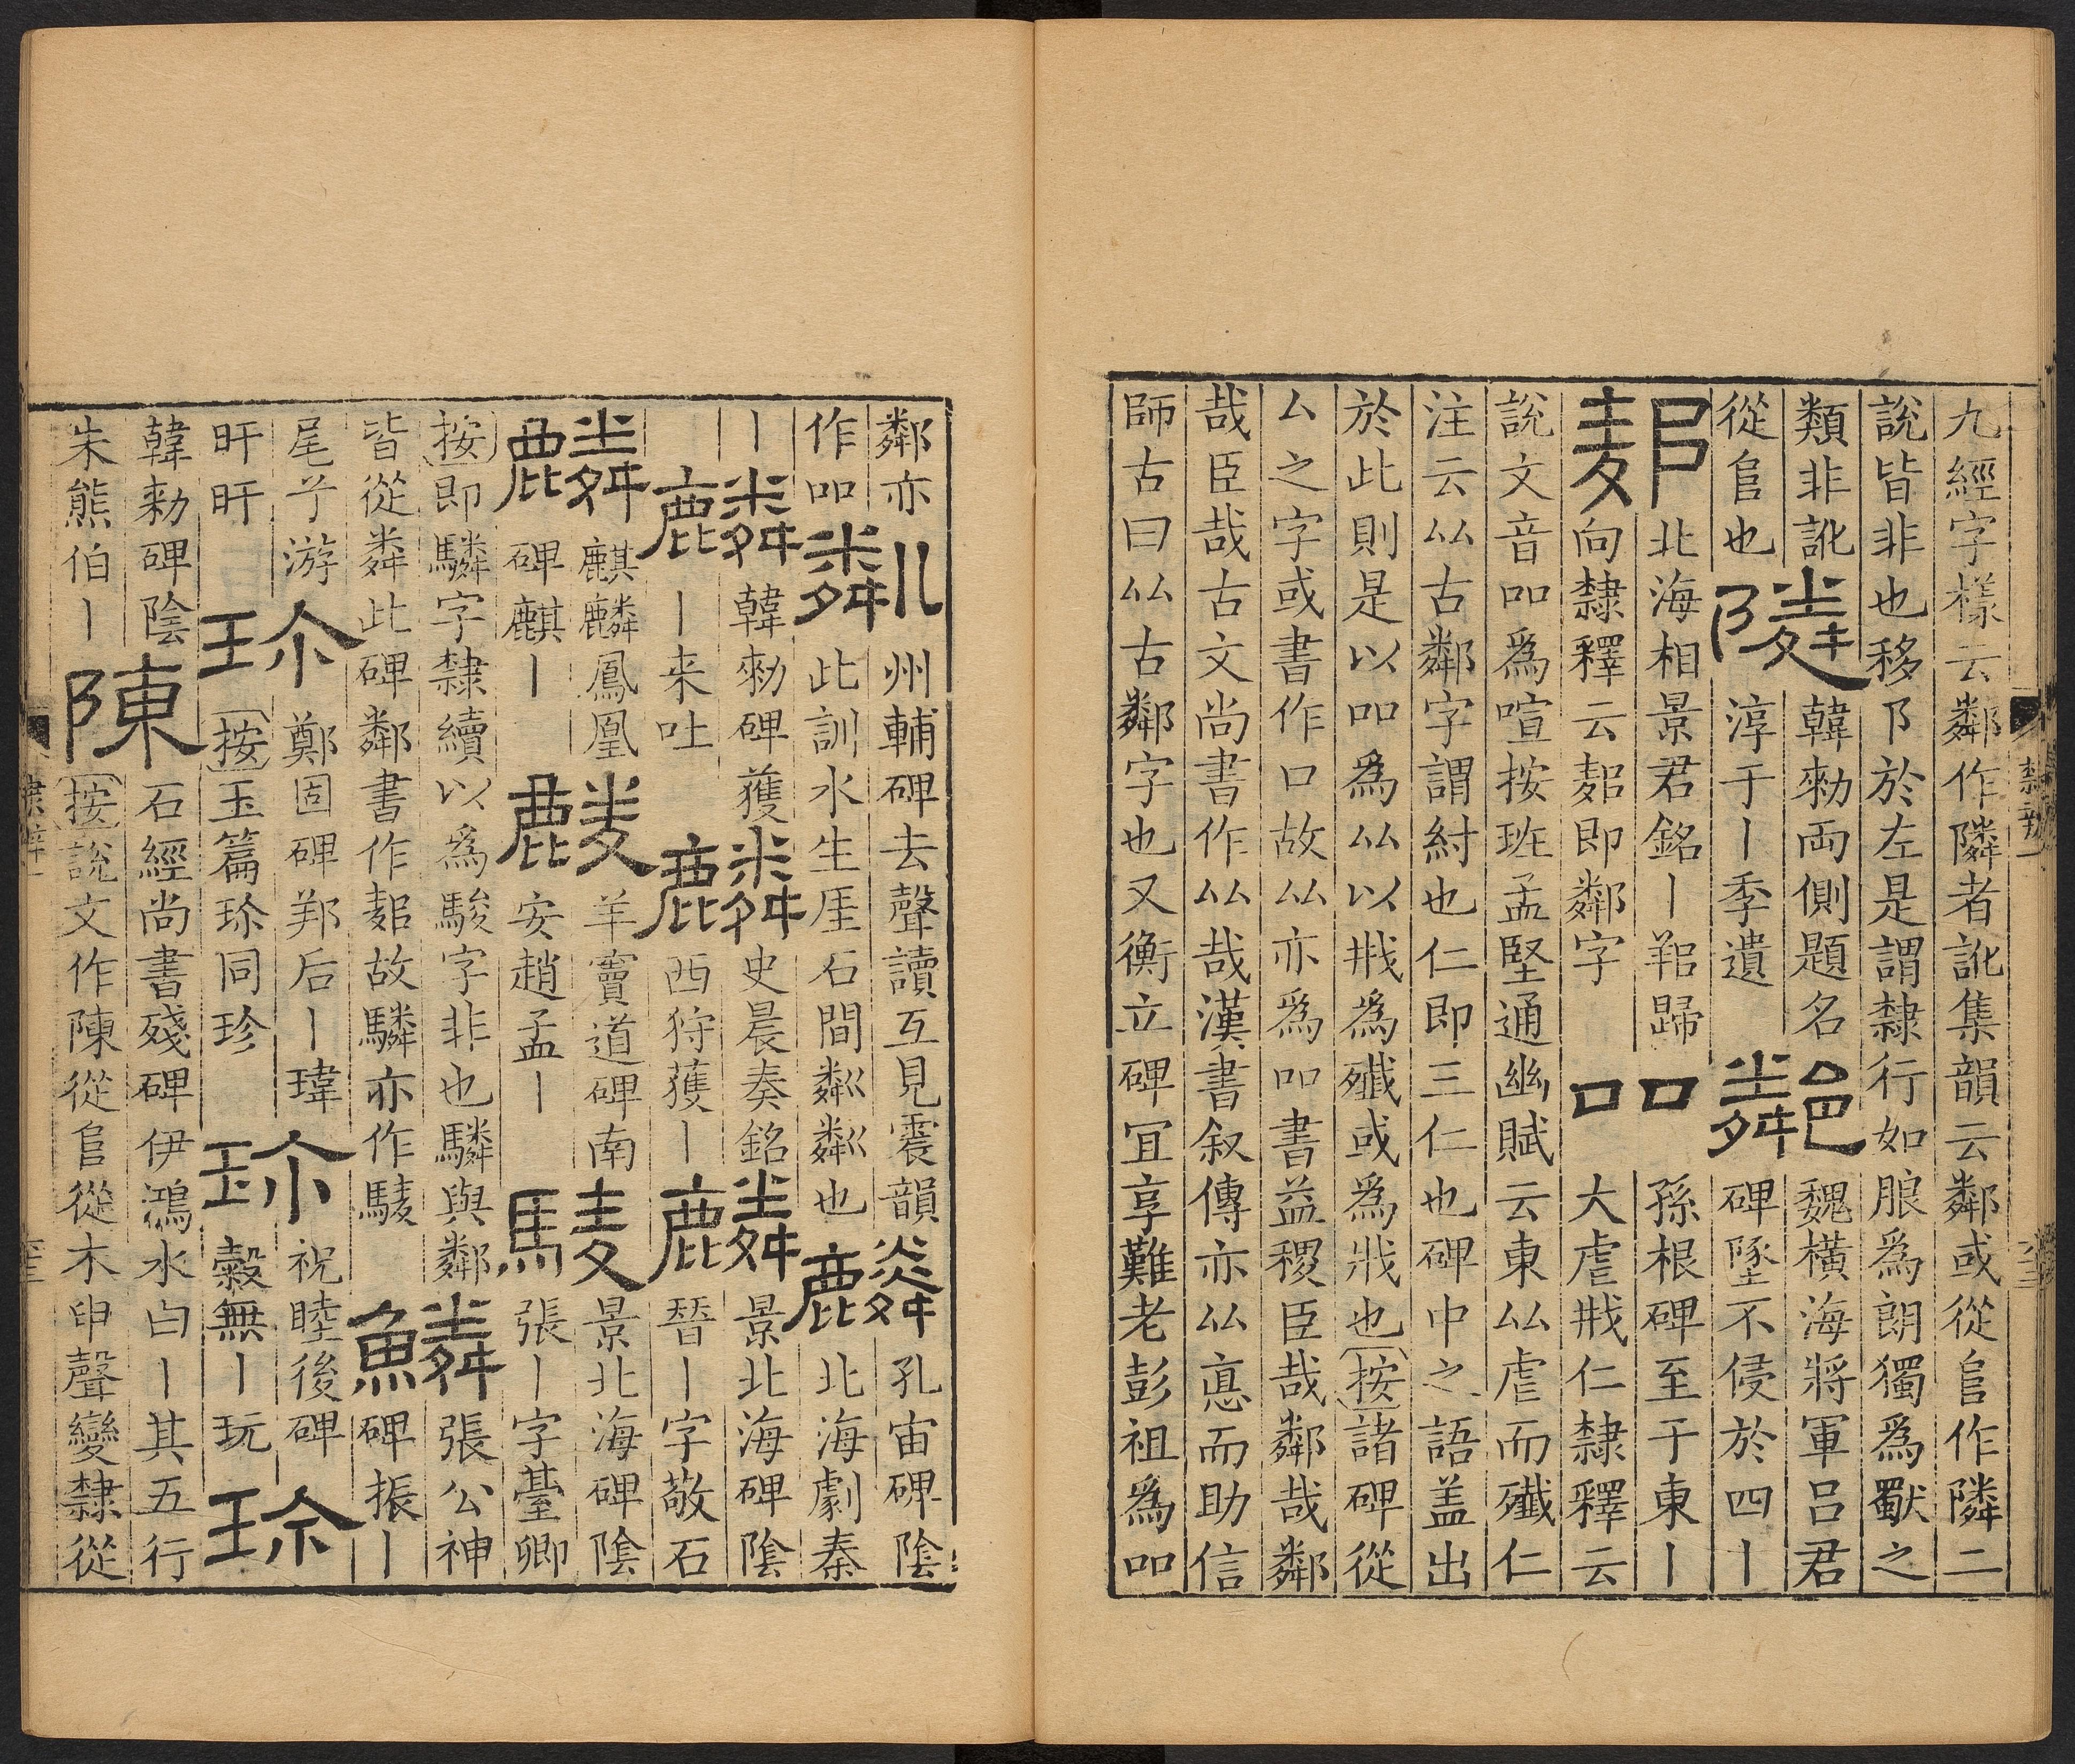 九經字樣云鄰作隣者訛集韻云鄰或從𨸏作隣二
說皆非也移阝於左是謂隸行如朖爲朗獨爲之
類非訛
從𨸏也
隣
韓勑兩側題名
淳于丨季遺
鄰
魏橫海將軍呂君
碑墜不侵於四丨
北海相景君銘丨歸
向隸釋云即鄰字
吅
孫根碑至于東丨
大虐戕仁隸釋云
說文音吅爲喧按班孟堅通幽賦云東厸虐而殲仁
注云厸古鄰字謂紂也仁即三仁也碑中之語盖出
於此則是以吅爲厸以戕爲殲或爲戕也按諸碑從
厶之字或書作口故厸亦爲吅書益稷臣哉鄰哉鄰
哉臣哉古文尚書作厸哉漢書叙傳亦厸悳而助信
師古曰厸古鄰字也又衡立碑冝享難老彭祖爲吅
鄰亦
作吅
粼
州輔碑去聲讀互見震韻
此訓水生厓石間粼粼也
麟
孔宙碑陰
北海劇秦
丨
麟
韓勑碑獲
丨来吐
麟
史晨奏銘
西狩獲丨
麟
景北海碑陰
晉丨字敬石
麟
麒麟鳳凰
碑麒丨
麟
羊竇道碑南
安趙孟丨
驎
景北海碑陰
張丨字臺卿
按即驎字隸續以爲駿字非也驎與鄰
皆從粦此碑鄰書作故驎亦作
鱗
張公神
碑振丨
尾孑游
旰旰
珎
鄭固碑邦后丨瑋
按玉篇珎同珍
珎
祝睦後碑
穀無丨玩
珎
韓勑碑陰
朱熊伯丨
陳
石經尚書殘碑伊鴻水曰丨其五行
按說文作陳從𨸏從木申聲變隸從